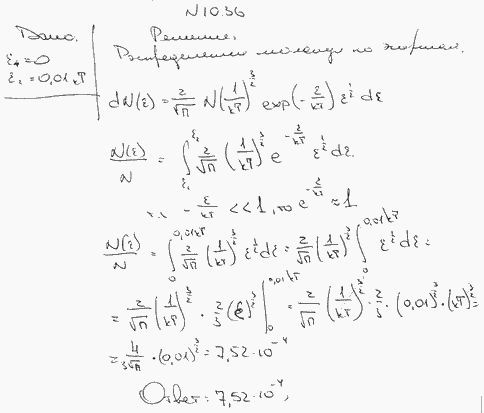 N 10.36
Дано.
ε₁ = 0
ε₂ = 0,01 кТ
Решение.
Распределение молекул по энергиям.
dN(ε) = 2/√π N(1/кТ)^(3/2) exp(-ε/кТ) ε^(1/2) dε
N(ε)/N = ∫_(ε₁)^(ε₂) 2/√π (1/кТ)^(3/2) e^(-ε/кТ) ε^(1/2) dε.
- ε/кТ << 1, то e^(-ε/кТ) ≈ 1
N(ε)/N = ∫_0^(0,01кТ) 2/√π (1/кТ)^(3/2) ε^(1/2) dε = 2/√π (1/кТ)^(3/2) ∫_0^(0,01кТ) ε^(1/2) dε =
= 2/√π (1/кТ)^(3/2) · 2/3 (ε)^(3/2) |_0^(0,01кТ) = 2/√π (1/кТ)^(3/2) · 2/3 · (0,01)^(3/2) · (кТ)^(3/2) =
= 4/3√π · (0,01)^(3/2) = 7,52 · 10^(-4)
Ответ: 7,52 · 10^(-4),